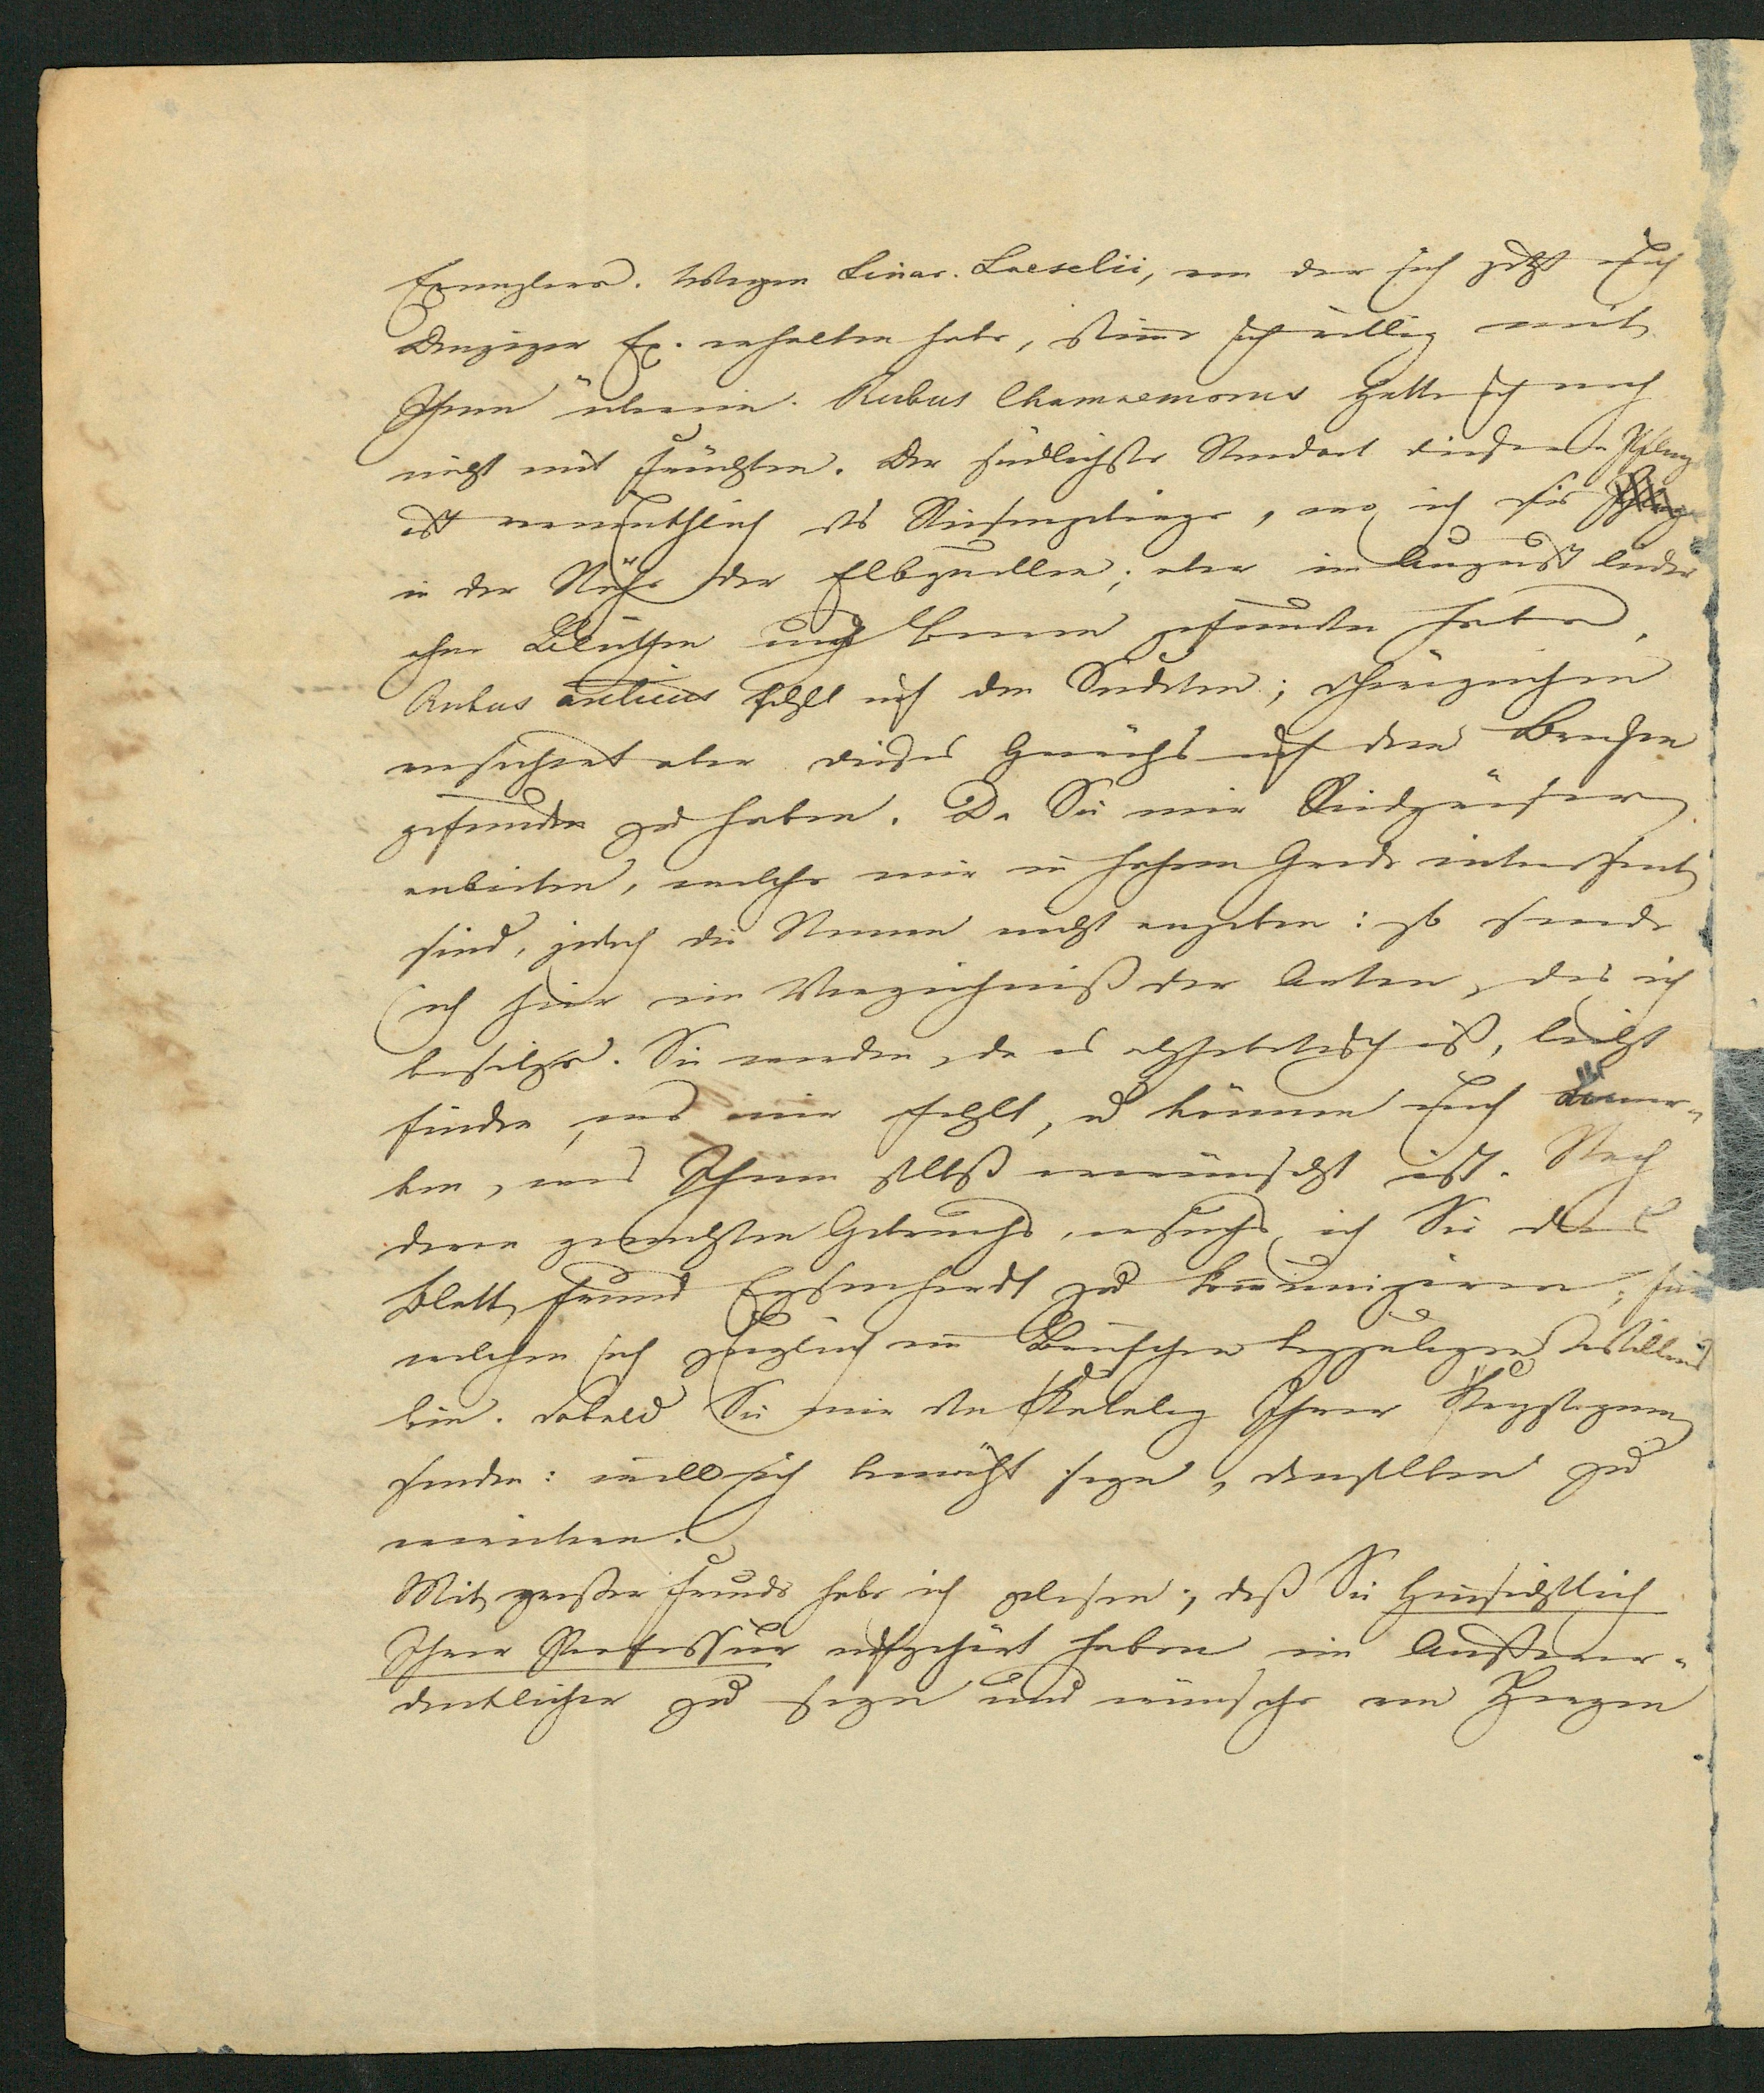 Exemplare. Wegen Linar. Loeselii, von der ich jetzt auch
Danziger Ex. erhalten habe, stim̅e ich völlig mit
Ihnen überein. Rubus Chamaemorus hatte ich noch
nicht mit Früchten. Der südlichste Standort dieser Pflanze
ist vermuthlich das Riesengebirge, wo ich sie
in der Nähe der Elbquellen; aber im August leider
ohne Blüthen und Beeren gefunden habe.
Rubus arcticus fehlt auf den Sudeten;
versichert aber dieses Gewächs auf dem Brocken
gefunden zu haben. Da Sie mir Riedgräser
anbieten, welche mir in hohem Grade interessant
sind, jedoch die Namen nicht angeben: so sende
ich hier ein Verzeichniß der Arten, die ich
besitze. Sie werden, da es alphabetisch ist, leicht
finden, was mir fehlt, u können auch bemer-
ken, was Ihnen selbst erwünscht ist. Nach
deren gemachten Gebrauche, ersuche ich Sie das
Blatt Freund Eysenhardt zu kom̅uniziren, für
welchen ich zugleich ein Briefchen beyzulegen
bin. Sobald Sie mir den Katalog Ihrer Kryptogamen
senden: will ich bemüht seyn, denselben zu
erweitern.
Mit großer Freude habe ich gelesen, daß Sie hinsichtlich
Ihrer Professur aufgehört haben ein Außeror-
dentlicher zu seyn und wünsche von Herzen